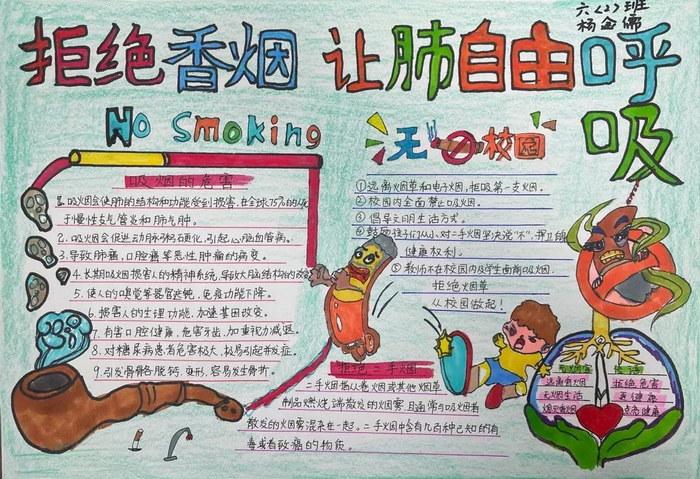 六(2)班
杨金儒
拒绝香烟 让肺自由呼
吸
No Smoking
无烟校园
吸烟的危害
1. 吸烟会使肺的结构和功能受到损害,在全球75%的死
于慢性支气管炎和肺气肿。
2. 吸烟会促进动脉粥硬化,引起心脑血管病。
3. 导致肺癌,口腔癌等恶性肿瘤的病变。
4. 长期吸烟损害人的精神系统,导致大脑结构的改变
5. 使人的嗅觉等器官迟钝,免疫功能下降。
6. 损害人的生理功能,加速基因改变。
7. 有害口腔健康,危害牙齿,加重视力减退。
8. 对糖尿病患者危害极大,极易引起并发症。
9. 引发骨骼各脱钙,变形,容易发生骨折。
①远离烟草和电子烟,拒吸第一支烟。
②校园内全面禁止吸烟。
③倡导文明生活方式。
④鼓励孩子们从小对二手烟坚决说“不”,捍卫
健康权利。
⑤教师不在校园内及学生面前吸烟.
拒绝烟草
从校园做起!
拒绝二手烟
二手烟指从卷烟或其他烟草
制品燃烧端散发的烟雾,且通常与吸烟者
散发的烟雾混杂在一起。二手烟中含有几百种已知的有
毒或者致癌的物质。
生活
远离香烟 拒绝危害
无烟生活
健康